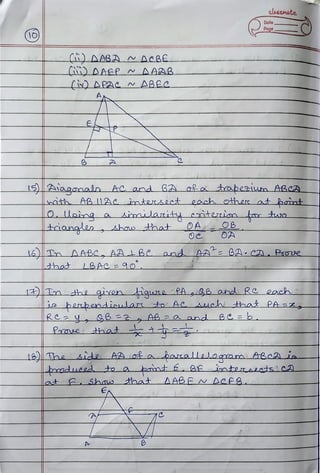 classmate
Date
Page
10
(ii) ΔABD ~ ΔCBE
(iii) ΔAEP ~ ΔADB
(iv) ΔPDC ~ ΔBEC
A
E
P
B D C
15) Diagonals AC and BD of a trapezium ABCD
with AB ∥ DC intersect each other at point
O. Using a similarity criterion for two
triangles, show that OA/OC = OB/OD
16) In ΔABC, AD ⊥ BC and AD² = BD·CD. Prove
that ∠BAC = 90°.
17) In the given figure PA, QB and RC each
is perpendicular to AC such that PA = x,
RC = y, QB = z, AB = a and BC = b.
Prove that 1/x + 1/y = 1/z.
18) The side AD of a parallelogram ABCD is
produced to a point E. BF intersects CD
at F. Show that ΔABE ~ ΔCFB.
E
D F C
A B